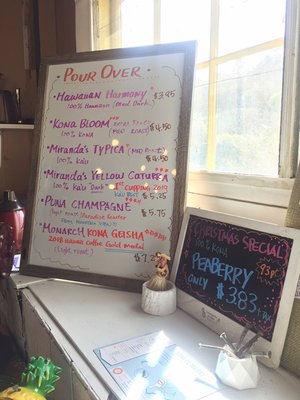 POUR OVER
• HAWAIIAN HARMONY
100% Hawaiian (Med Dark) $3.95
• KONA BLOOM
100% KONA (MED ROAST) $4.50
• MIRANDA'S TYPICA (MED ROAST)
100% KA'U $4.50
• MIRANDA'S YELLOW CATURRA
100% KA'U DARK 1st CUPPING 2019
$5.25
• PUNA CHAMPAGNE
(light roast) $5.75
• MONARCH KONA GEISHA
2018 Hawaii Coffee Gold Medal
(light roast)
CHRISTMAS SPECIAL
100% KONA
PEABERRY
ONLY $383